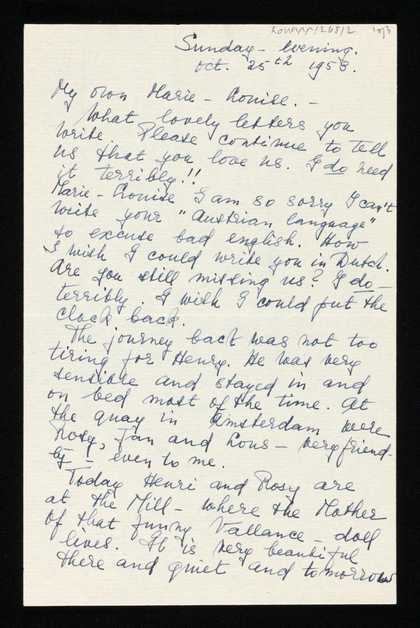 Sunday - evening.
Oct. 25th 1958.
My own Marie-Louise. -
What lovely letters you
write. Please continue to tell
us that you love us. I do need
it terribly!!
Marie-Louise I am so sorry I can't
write your "Austrian language"
so excuse bad english. How
I wish I could write you in Dutch.
Are you still missing us? I do -
terribly. I wish I could put the
clock back.
The journey back was not too
tiring for Henry. He was very
sensible and stayed in and
on bed most of the time. At
the quay in Amsterdam were
Rosy, Jan and Lous - very friend-
ly - even to me.
Today Henri and Rosy are
at the Mill - where the Mother
of that funny Vallance-doll
lives. It is very beautiful
there and quiet and tomorrow